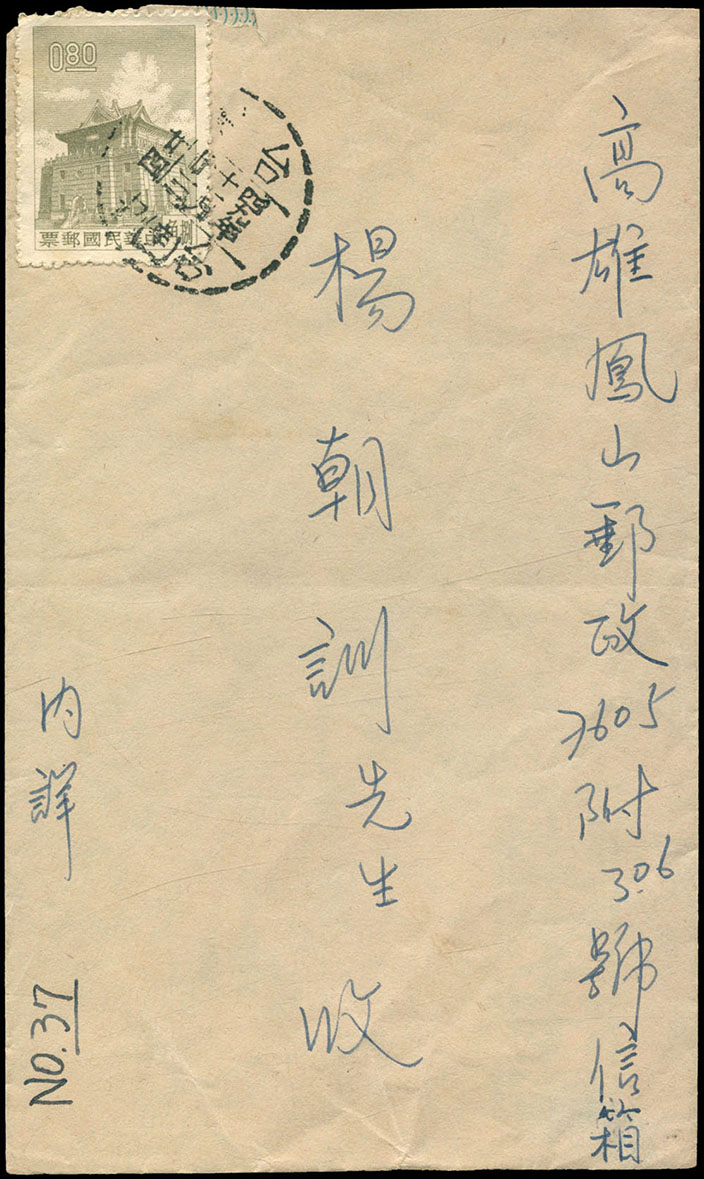 高雄鳳山郵政7605附306號信箱
楊朝訓先生 收
內詳
NO.37
0.80
中華民國郵票
捌角
台